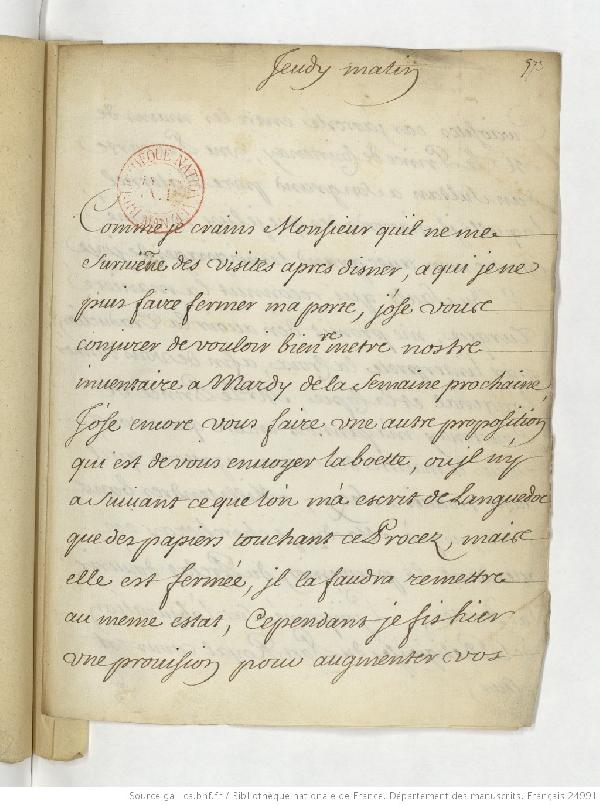 Jeudy matin
Comme je crains Monsieur quil ne me
survienne des visites apres disner, a qui je ne
puis faire fermer ma porte, j'ose vous
conjurer de vouloir bien remetre nostre
inventaire a Mardy de la semaine prochaine,
J'ose encore vous faire vne autre proposition
qui est de vous envoyer la boette, ou jl n'y
a suivant ce que l'on m'a escrit de Languedoc
que des papiers touchant ce Procez, mais
elle est fermée, jl la faudra remettre
au meme estat, Cependant je fis hier
vne provision pour augmenter vos
Source gallica.bnf.fr / Bibliothèque nationale de France. Département des manuscrits. Français 24991